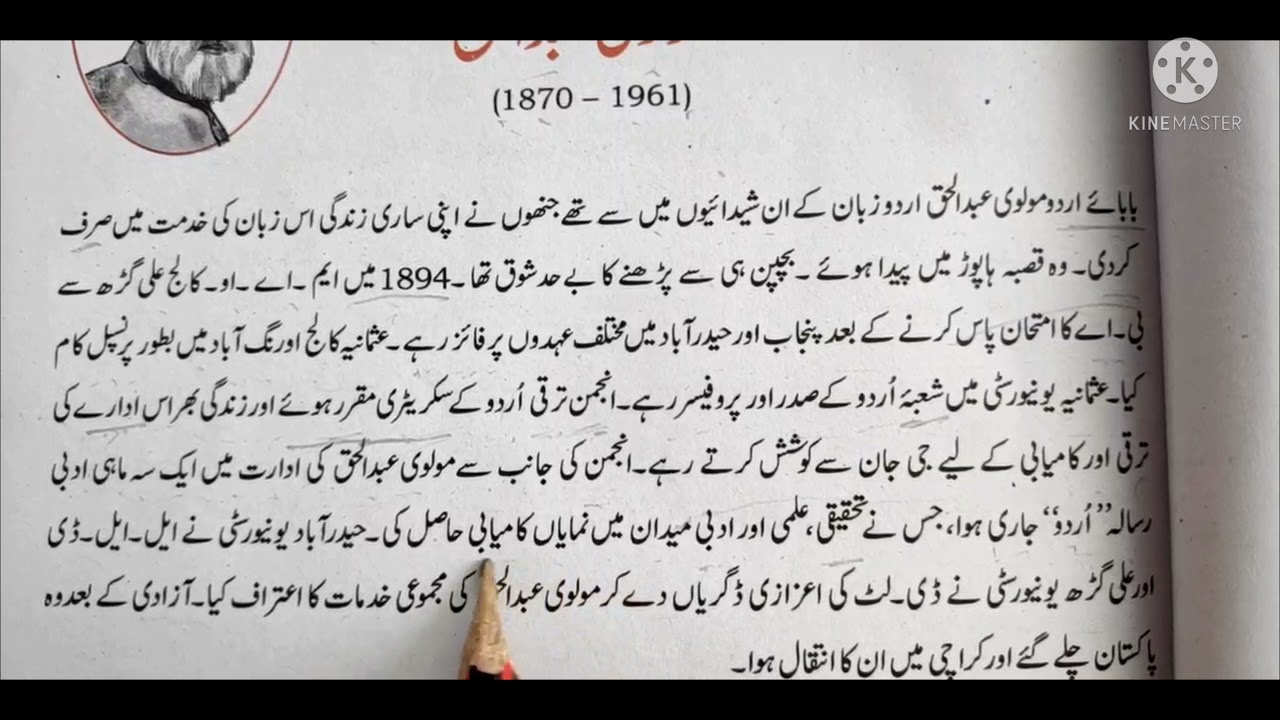 (1870 – 1961)
K
KINEMASTER
بابائے اردو مولوی عبدالحق اردو زبان کے ان شیدائیوں میں سے تھے جنھوں نے اپنی ساری زندگی اس زبان کی خدمت میں صرف
کردی۔ وہ قصبہ ہاپوڑ میں پیدا ہوئے ۔ بچپن ہی سے پڑھنے کا بے حد شوق تھا ۔ 1894 میں ایم ۔ اے ۔ او۔ کالج علی گڑھ سے
بی ۔ اے کا امتحان پاس کرنے کے بعد پنجاب اور حیدرآباد میں مختلف عہدوں پر فائز رہے ۔ عثمانیہ کالج اورنگ آباد میں بطور پرنسپل کام
کیا۔ عثمانیہ یونیورسٹی میں شعبۂ اُردو کے صدر اور پروفیسر رہے۔ انجمن ترقی اُردو کے سکریٹری مقرر ہوئے اور زندگی بھر اس ادارے کی
ترقی اور کامیابی کے لیے جی جان سے کوشش کرتے رہے۔ انجمن کی جانب سے مولوی عبدالحق کی ادارت میں ایک سہ ماہی ادبی
رسالہ ”اُردو“ جاری ہوا، جس نے تحقیقی، علمی اور ادبی میدان میں نمایاں کامیابی حاصل کی۔ حیدرآباد یونیورسٹی نے ایل۔ ایل۔ ڈی
اور علی گڑھ یونیورسٹی نے ڈی۔ لٹ کی اعزازی ڈگریاں دے کر مولوی کی مجموعی خدمات کا اعتراف کیا۔ آزادی کے بعد وہ
پاکستان چلے گئے اور کراچی میں ان کا انتقال ہوا۔